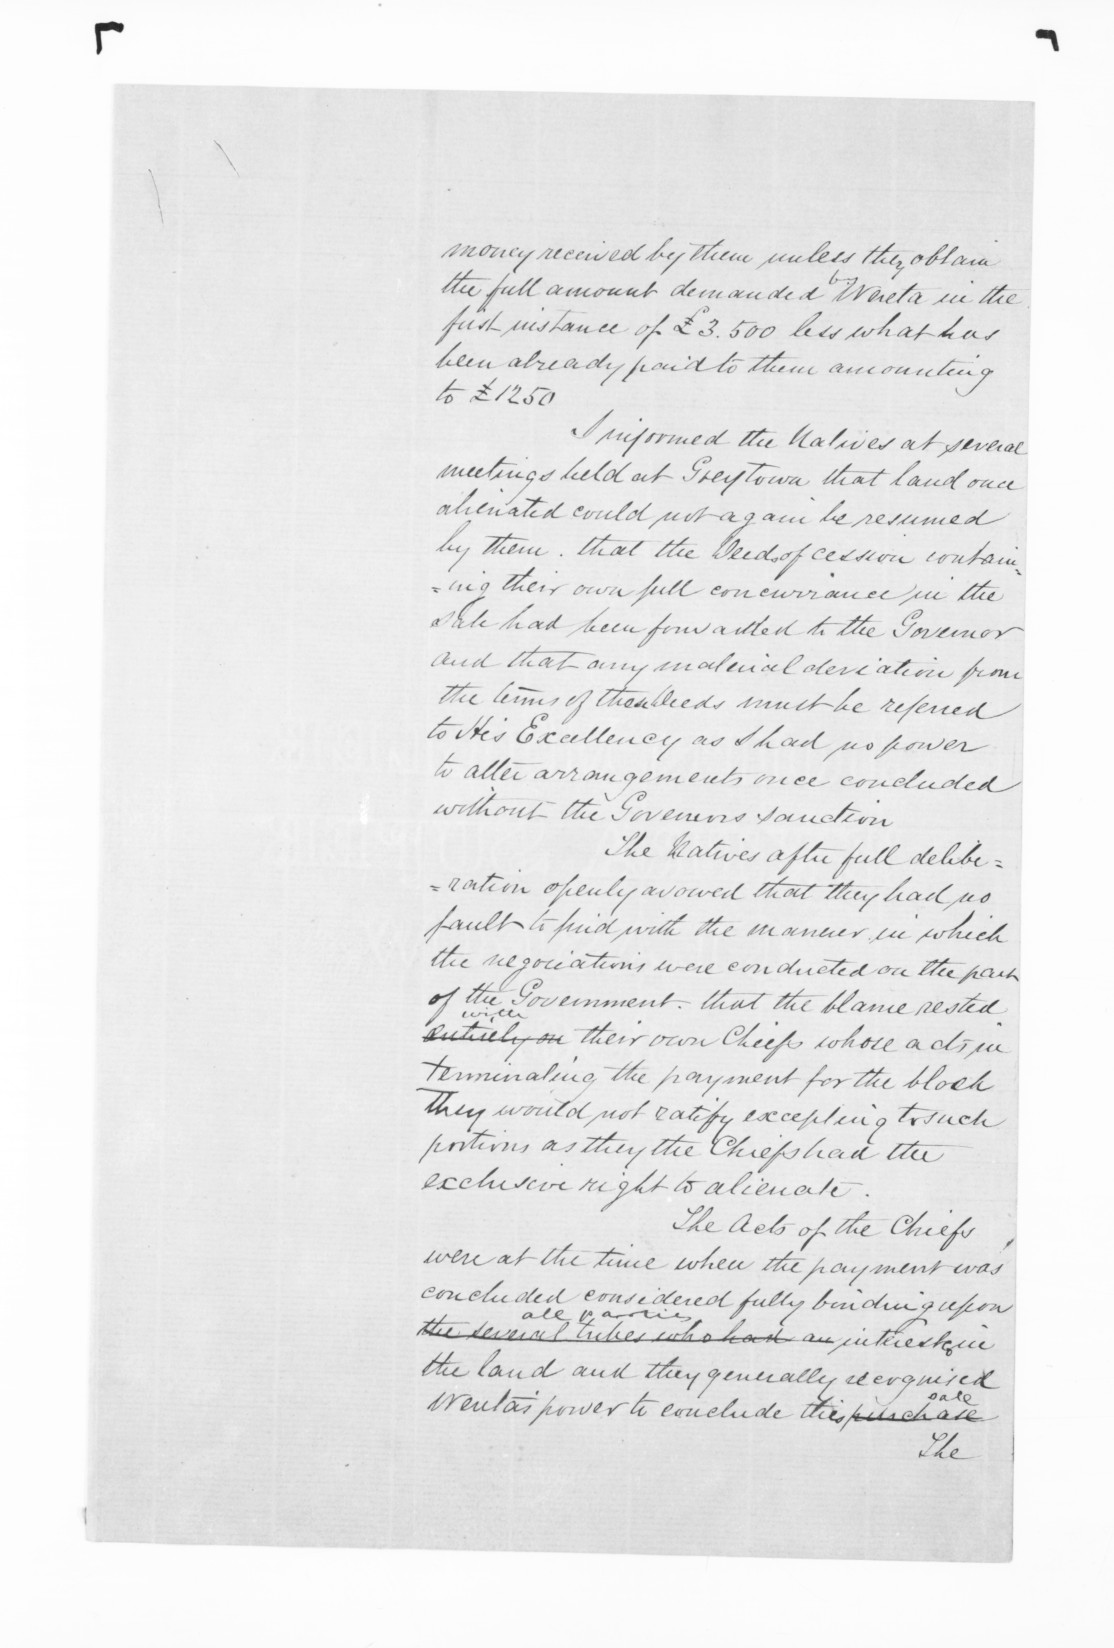 money received by them unless they obtain
the full amount demanded by Wereta in the
first instance of £3.500 less what has
been already paid to them amounting
to £1250
I informed the Natives at several
meetings held at Greytown that land once
alienated could not again be resumed
by them. that the Deeds of cession contain=
=ing their own full concurrance in the
sale had been forwarded to the Governor
and that any material deviation from
the terms of these Deeds must be referred
to His Excellency as I had no power
to alter arrangements once concluded
without the Governors sanction
The Natives after full delibe=
=ration openly avowed that they had no
fault to find with the manner in which
the negociations were conducted on the part
of the Government. that the blame rested
with
entirely on their own Chiefs whose acts in
terminating the payment for the block
they would not ratify excepting to such
portions as they the Chiefs had the
exclusive right to alienate.
The Acts of the Chiefs
were at the time when the payment was
concluded considered fully binding upon
all parties
the several tribes who had an interested in
the land and they generally recognised
Wereta's power to conclude the sale
this purchase
The